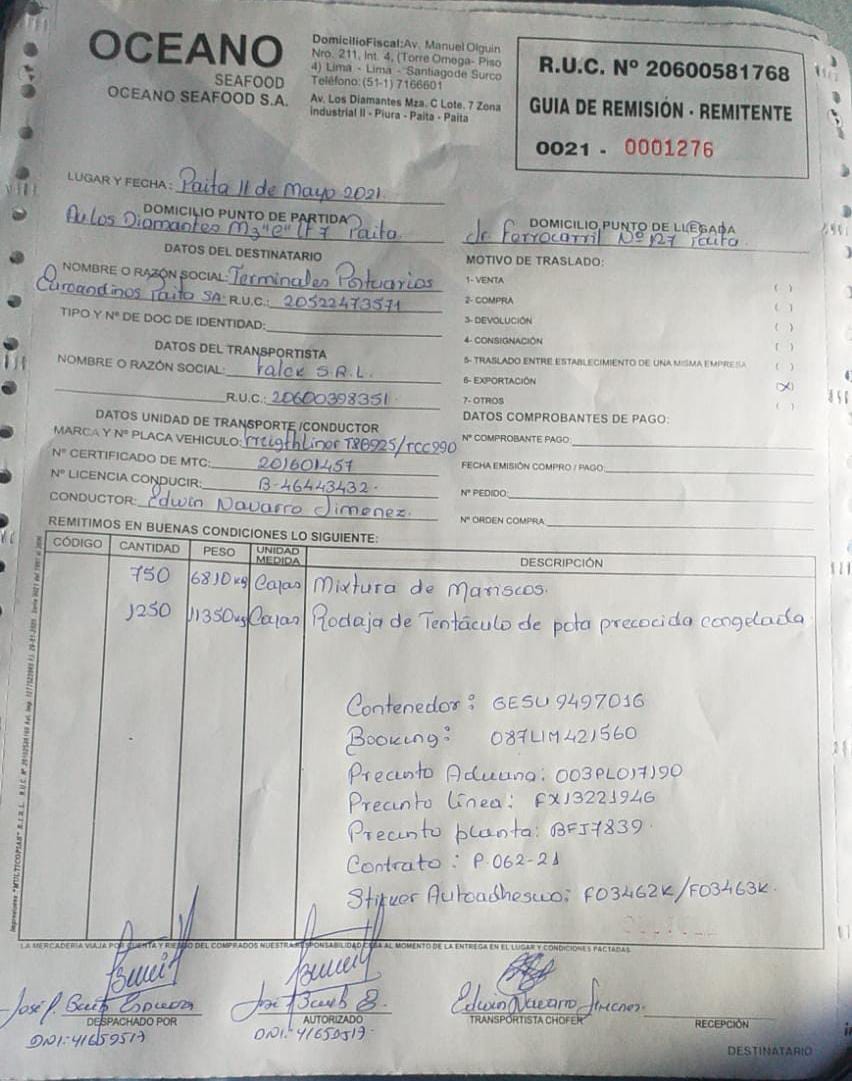 OCEANO
SEAFOOD
OCEANO SEAFOOD S.A.
DomicilioFiscal:Av. Manuel Olguin
Nro. 211, Int. 4, (Torre Omega- Piso
4) Lima - Lima - Santiagode Surco
Teléfono: (51-1) 7166601
Av. Los Diamantes Mza. C Lote. 7 Zona
Industrial II - Piura - Paita - Paita
R.U.C. Nº 20600581768
GUIA DE REMISIÓN - REMITENTE
0021 - 0001276
LUGAR Y FECHA: Paita 11 de Mayo 2021.
DOMICILIO PUNTO DE PARTIDA
Av Los Diamantes Mz "C" LT 7 Paita.
DATOS DEL DESTINATARIO
NOMBRE O RAZÓN SOCIAL: Terminales Portuarios
Euroandinos Paita SA. R.U.C.: 20522473571
TIPO Y Nº DE DOC DE IDENTIDAD:
DATOS DEL TRANSPORTISTA
NOMBRE O RAZÓN SOCIAL: S.R.L.
R.U.C.: 20600398351
DATOS UNIDAD DE TRANSPORTE /CONDUCTOR
MARCA Y Nº PLACA VEHICULO: T8G925/
Nº CERTIFICADO DE MTC: 201601457
Nº LICENCIA CONDUCIR: B-46443432.
CONDUCTOR: Edwin Navarro Jimenez.
DOMICILIO PUNTO DE LLEGADA
Jr Ferrocarril Nº 127 Paita.
MOTIVO DE TRASLADO:
1- VENTA ( )
2- COMPRA ( )
3- DEVOLUCIÓN ( )
4- CONSIGNACIÓN ( )
5- TRASLADO ENTRE ESTABLECIMIENTO DE UNA MISMA EMPRESA ( )
6- EXPORTACIÓN (X)
7- OTROS ( )
DATOS COMPROBANTES DE PAGO:
Nº COMPROBANTE PAGO:
FECHA EMISIÓN COMPRO / PAGO:
Nº PEDIDO:
Nº ORDEN COMPRA:
REMITIMOS EN BUENAS CONDICIONES LO SIGUIENTE:
CÓDIGO CANTIDAD PESO UNIDAD MEDIDA DESCRIPCIÓN
750 6810 kg Cajas Mixtura de Mariscos.
1250 11350 kg Cajas Rodaja de Tentáculo de pota precocida congelada
Contenedor: GESU 9497016
Booking: 087LIM421560
Precinto Aduana: 003PL017190
Precinto línea: FX13221946
Precinto planta: BFI7839.
Contrato: P.062-21
Stiker Autoadhesivo: F03462K/F03463K.
LA MERCADERIA VIAJA POR CUENTA Y RIESGO DEL COMPRADOS NUESTRA RESPONSABILIDAD CESA AL MOMENTO DE LA ENTREGA EN EL LUGAR Y CONDICIONES PACTADAS
José P.
DESPACHADO POR
DNI: 41659517
José
AUTORIZADO
DNI: 41659517.
Edwin Navarro Jimenez.
TRANSPORTISTA CHOFER
RECEPCIÓN
DESTINATARIO